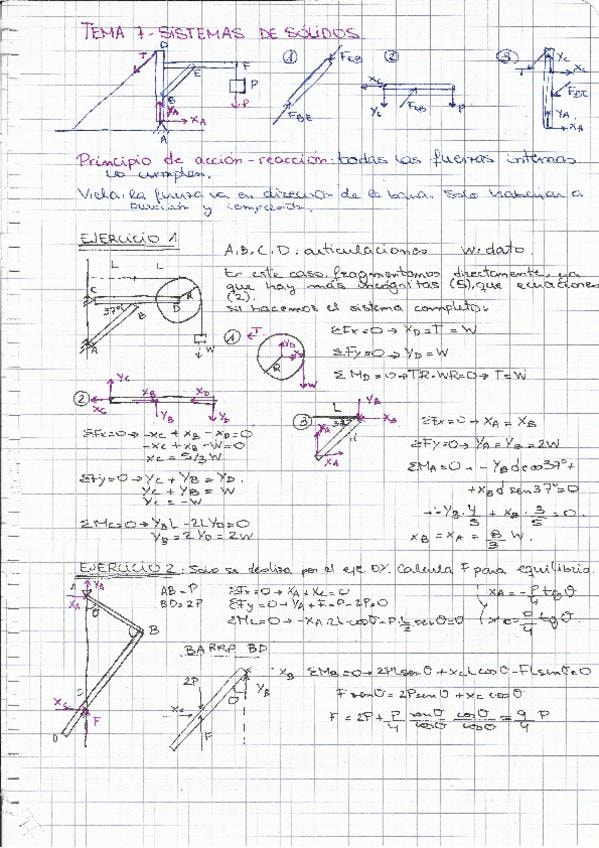 TEMA 7-SISTEMAS DE SÓLIDOS
D
T
E
F
P
P
B
YA
XA
A
① FEB
FBE
② XC
YC
FEB
P
③ YC
T
XC
FBE
YA
XA
Principio de acción-reacción: todas las fuerzas internas
lo cumplen.
la fuerza va en dirección de la barra. Solo trabajan a
y compresión.
EJERCICIO 1
A, B, C, D: articulaciones W: dato.
En este caso, fragmentamos directamente, ya
que hay más incógnitas (5), que ecuaciones
(2).
Si hacemos el sistema completo:
L L
C
37º
B
D
R
A
W
① T
YD
R
W
ΣFx=0 → XD=T=W
ΣFy=0 → YD=W
ΣMD=0 → TR-WR=0 → T=W
② YC
XC
XB
YB
XD
YD
ΣFx=0 → -XC+XB-XD=0
-XC+XB-W=0
XC=5/3 W
ΣFy=0 → YC+YB=YD
YC+YB=W
YC=-W
ΣMC=0 → YBL-2LYD=0
YB=2YD=2W
③ L
YB
XB
37º
d
XA
ΣFx=0 → XA=XB
ΣFy=0 → YA=YB=2W
ΣMA=0 → -YB d cos37º+
+XB d sen37º=0
-YB·4/5 + XB·3/5=0
XB=XA=8/3 W
EJERCICIO 2: Solo se desliza por el eje OY. Calcula F para equilibrio.
A YA
XA
θ
B
XC
C
F
D
AB=P
BD=2P
ΣFx=0 → XA+XC=0
ΣFy=0 → YA+F-P-2P=0
ΣMC=0 → -XA·2L·cosθ-P·L/2·senθ=0
XA=-P/4 tgθ
XC=P/4 tgθ
BARRA BD
2P
XC
F
θ
YB
XB
ΣMB=0 → 2PLsenθ+XCLcosθ-FLsenθ=0
Fsenθ=2Psenθ+XCcosθ
F=2P+P/4 senθ/cosθ cosθ/senθ=9/4 P